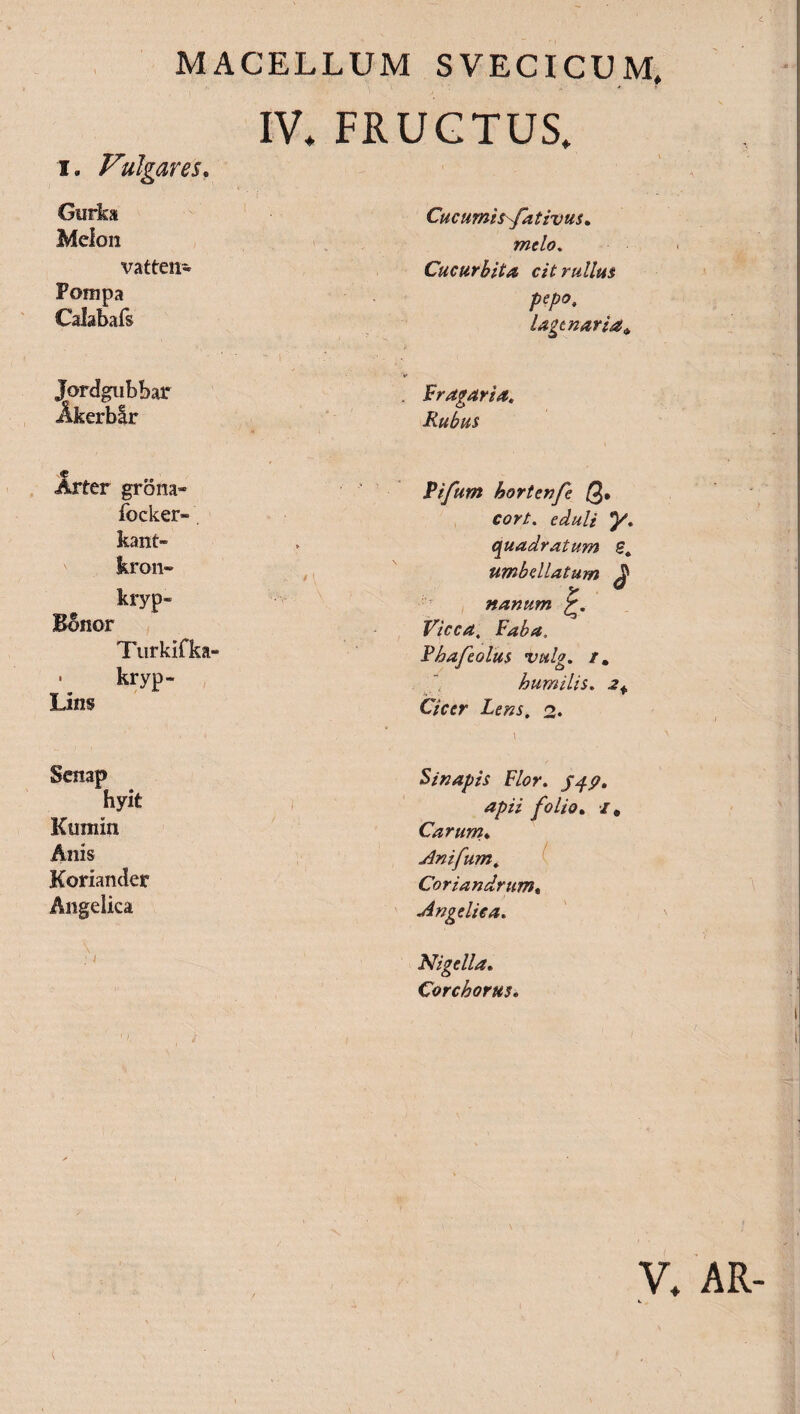 MACELLUM SVECICUM.
IV. FRUCTUS.
I. Vulgares.
Gurka Cucumis sativus.
Melon melo.
vatten- Cucurbita citrullus
Pompa pepo.
Calabaſs lagenaria.
Jordgubbar Fragaria.
Åkerbår Rubus
Årter gröna- Piſum hortenſe β.
ſocker- cort. eduli γ.
kant- quadratum ε.
kron- umbellatum δ
kryp- nanum ζ.
Bönor Vicca. Faba.
Turkiſka- Phaſeolus vulg. 1.
kryp- humilis. 2.
Lins Cicer Lens. 2.
Senap Sinapis Flor. 549.
hvit apii folio. 1.
Kumin Carum.
Anis Aniſum.
Koriander Coriandrum.
Angelica Angelica.
Nigella.
Corchorus.
V. AR-